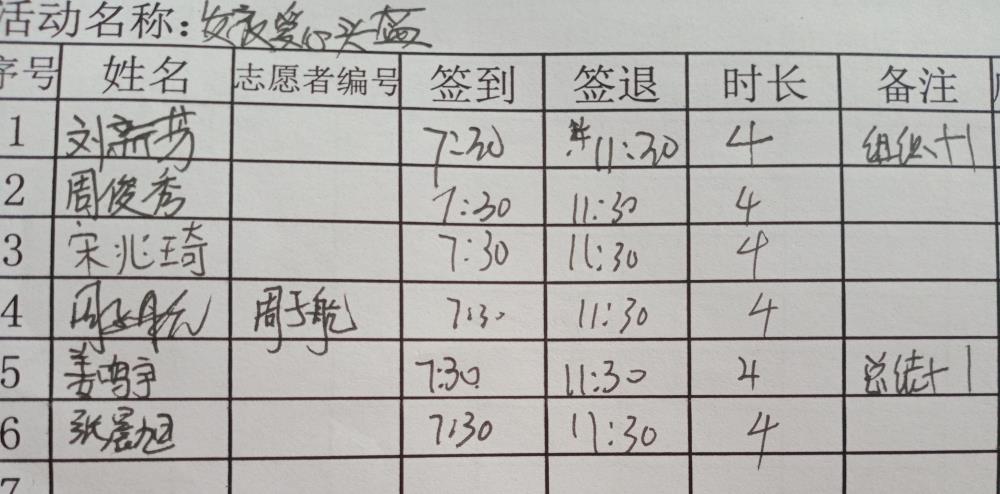 活动名称：发放爱心头盔
序号 姓名 志愿者编号 签到 签退 时长 备注
1 刘新芳 7:30 11:30 4 组织+1
2 周俊秀 7:30 11:30 4
3 宋兆琦 7:30 11:30 4
4 周于航 7:30 11:30 4
5 姜鸣宇 7:30 11:30 4 总结+1
6 张晨旭 7:30 11:30 4
7